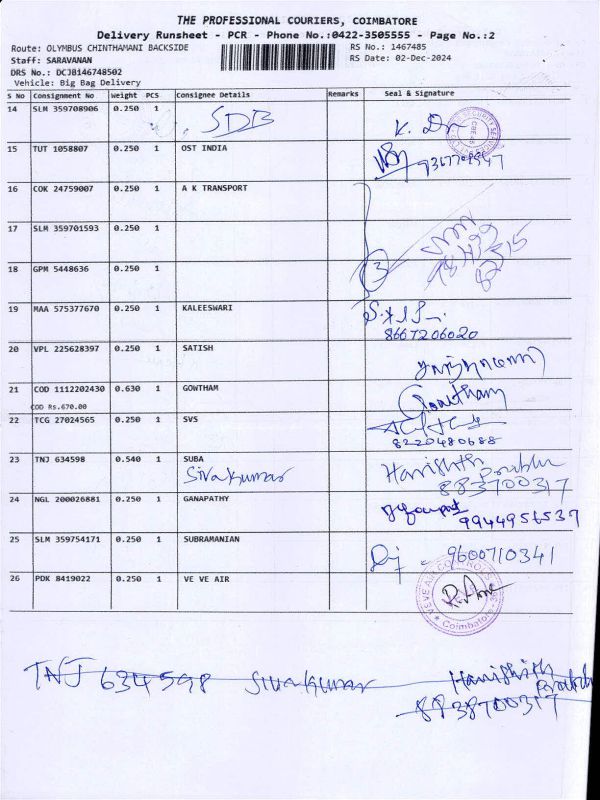 THE PROFESSIONAL COURIERS, COIMBATORE
Delivery Runsheet - PCR - Phone No.:0422-3505555 - Page No.:2
Route: OLYMBUS CHINTHAMANI BACKSIDE RS No.: 1467485
Staff: SARAVANAN RS Date: 02-Dec-2024
DRS No.: DCJB146748502
Vehicle: Big Bag Delivery
S No Consignment No Weight PCS Consignee Details Remarks Seal & Signature
14 SLM 359708906 0.250 1 SDB
15 TUT 1058807 0.250 1 OST INDIA
16 COK 24759007 0.250 1 A K TRANSPORT
17 SLM 359701593 0.250 1
18 GPM 5448636 0.250 1 3
19 MAA 575377670 0.250 1 KALEESWARI
8667206020
20 VPL 225628397 0.250 1 SATISH
21 COD 1112202430 0.630 1 GOWTHAM Gowtham
COD Rs.670.00
22 TCG 27024565 0.250 1 SVS
8220480688
23 TNJ 634598 0.540 1 SUBA Harishith
Sivakumar Prabhu
883700317
24 NGL 200026881 0.250 1 GANAPATHY
9944956537
25 SLM 359754171 0.250 1 SUBRAMANIAN 9600710341
26 PDK 8419022 0.250 1 VE VE AIR
Coimbatore
TNJ 634598 Sivakumar Harishith
Prabhu
8838700317